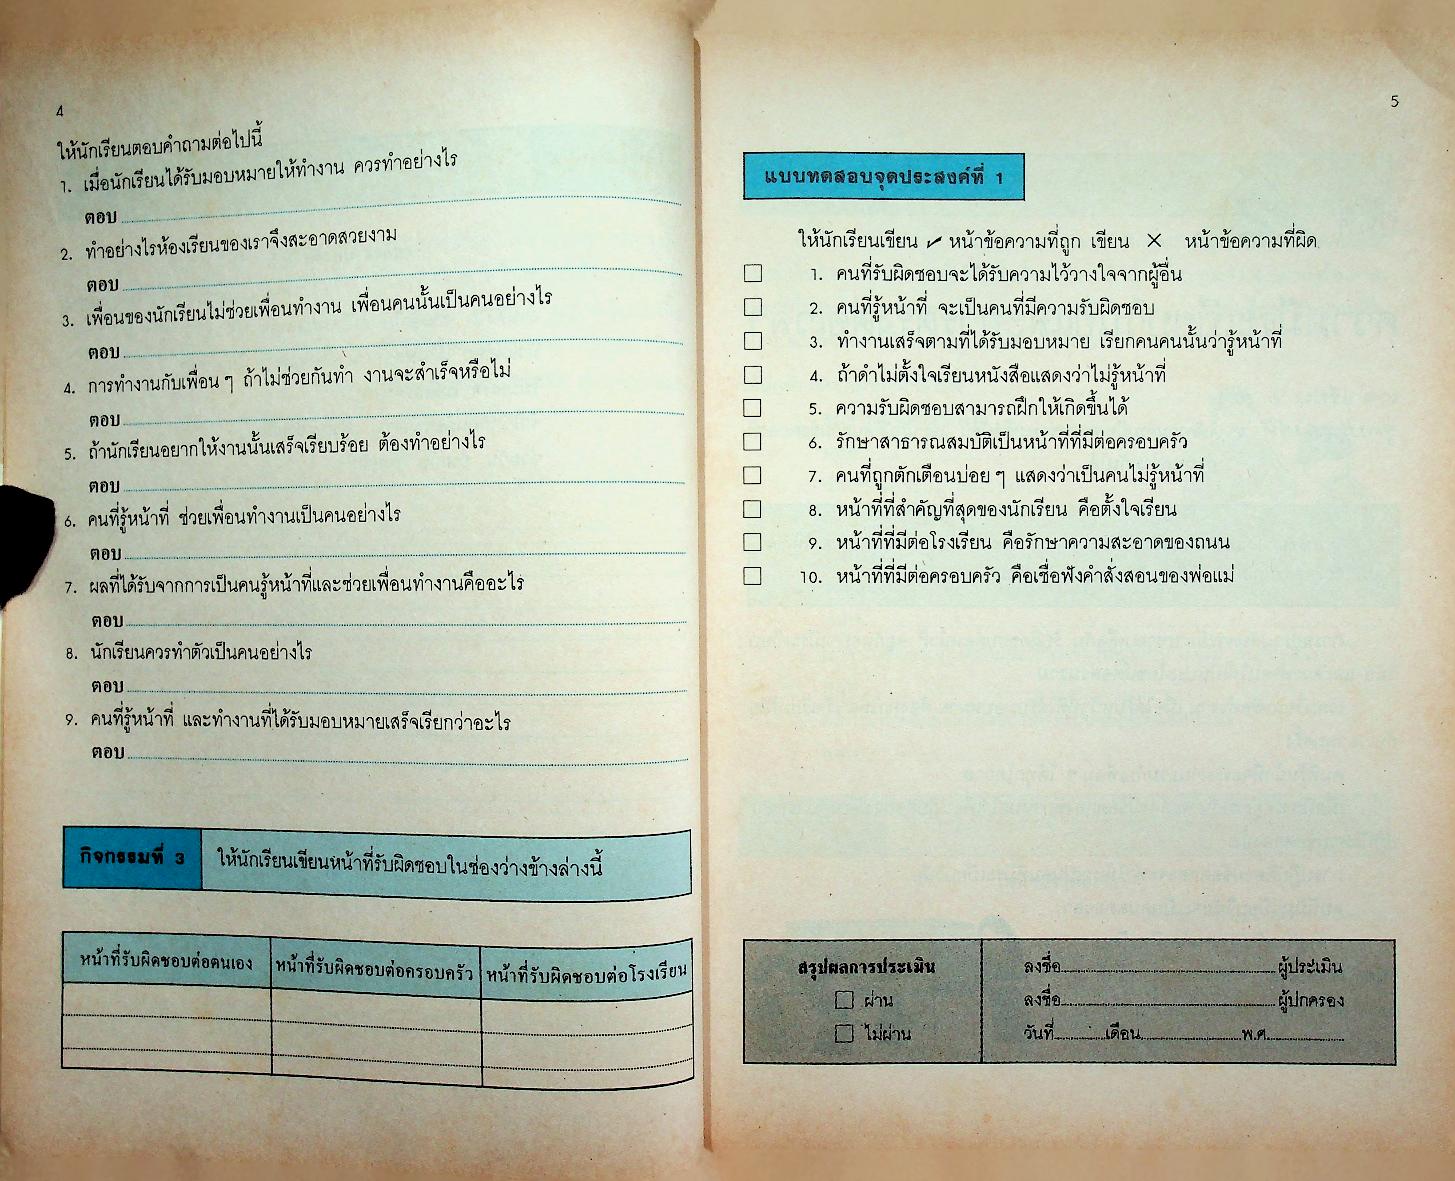 4
ให้นักเรียนตอบคำถามต่อไปนี้
1. เมื่อนักเรียนได้รับมอบหมายให้ทำงาน ควรทำอย่างไร
ตอบ
2. ทำอย่างไรห้องเรียนของเราจึงสะอาดสวยงาม
ตอบ
3. เพื่อนของนักเรียนไม่ช่วยเพื่อนทำงาน เพื่อนคนนั้นเป็นคนอย่างไร
ตอบ
4. การทำงานกับเพื่อน ๆ ถ้าไม่ช่วยกันทำ งานจะสำเร็จหรือไม่
ตอบ
5. ถ้านักเรียนอยากให้งานนั้นเสร็จเรียบร้อย ต้องทำอย่างไร
ตอบ
6. คนที่รู้หน้าที่ ช่วยเพื่อนทำงานเป็นคนอย่างไร
ตอบ
7. ผลที่ได้รับจากการเป็นคนรู้หน้าที่และช่วยเพื่อนทำงานคืออะไร
ตอบ
8. นักเรียนควรทำตัวเป็นคนอย่างไร
ตอบ
9. คนที่รู้หน้าที่ และทำงานที่ได้รับมอบหมายเสร็จเรียกว่าอะไร
ตอบ
กิจกรรมที่ 3 ให้นักเรียนเขียนหน้าที่รับผิดชอบในช่องว่างข้างล่างนี้
หน้าที่รับผิดชอบต่อตนเอง หน้าที่รับผิดชอบต่อครอบครัว หน้าที่รับผิดชอบต่อโรงเรียน
5
แบบทดสอบจุดประสงค์ที่ 1
ให้นักเรียนเขียน ✓ หน้าข้อความที่ถูก เขียน × หน้าข้อความที่ผิด
1. คนที่รับผิดชอบจะได้รับความไว้วางใจจากผู้อื่น
2. คนที่รู้หน้าที่ จะเป็นคนที่มีความรับผิดชอบ
3. ทำงานเสร็จตามที่ได้รับมอบหมาย เรียกคนคนนั้นว่ารู้หน้าที่
4. ถ้าดำไม่ตั้งใจเรียนหนังสือแสดงว่าไม่รู้หน้าที่
5. ความรับผิดชอบสามารถฝึกให้เกิดขึ้นได้
6. รักษาสาธารณสมบัติเป็นหน้าที่ที่มีต่อครอบครัว
7. คนที่ถูกตักเตือนบ่อย ๆ แสดงว่าเป็นคนไม่รู้หน้าที่
8. หน้าที่ที่สำคัญที่สุดของนักเรียน คือตั้งใจเรียน
9. หน้าที่ที่มีต่อโรงเรียน คือรักษาความสะอาดของถนน
10. หน้าที่ที่มีต่อครอบครัว คือเชื่อฟังคำสั่งสอนของพ่อแม่
สรุปผลการประเมิน
ผ่าน
ไม่ผ่าน
ลงชื่อ ผู้ประเมิน
ลงชื่อ ผู้ปกครอง
วันที่ เดือน พ.ศ.